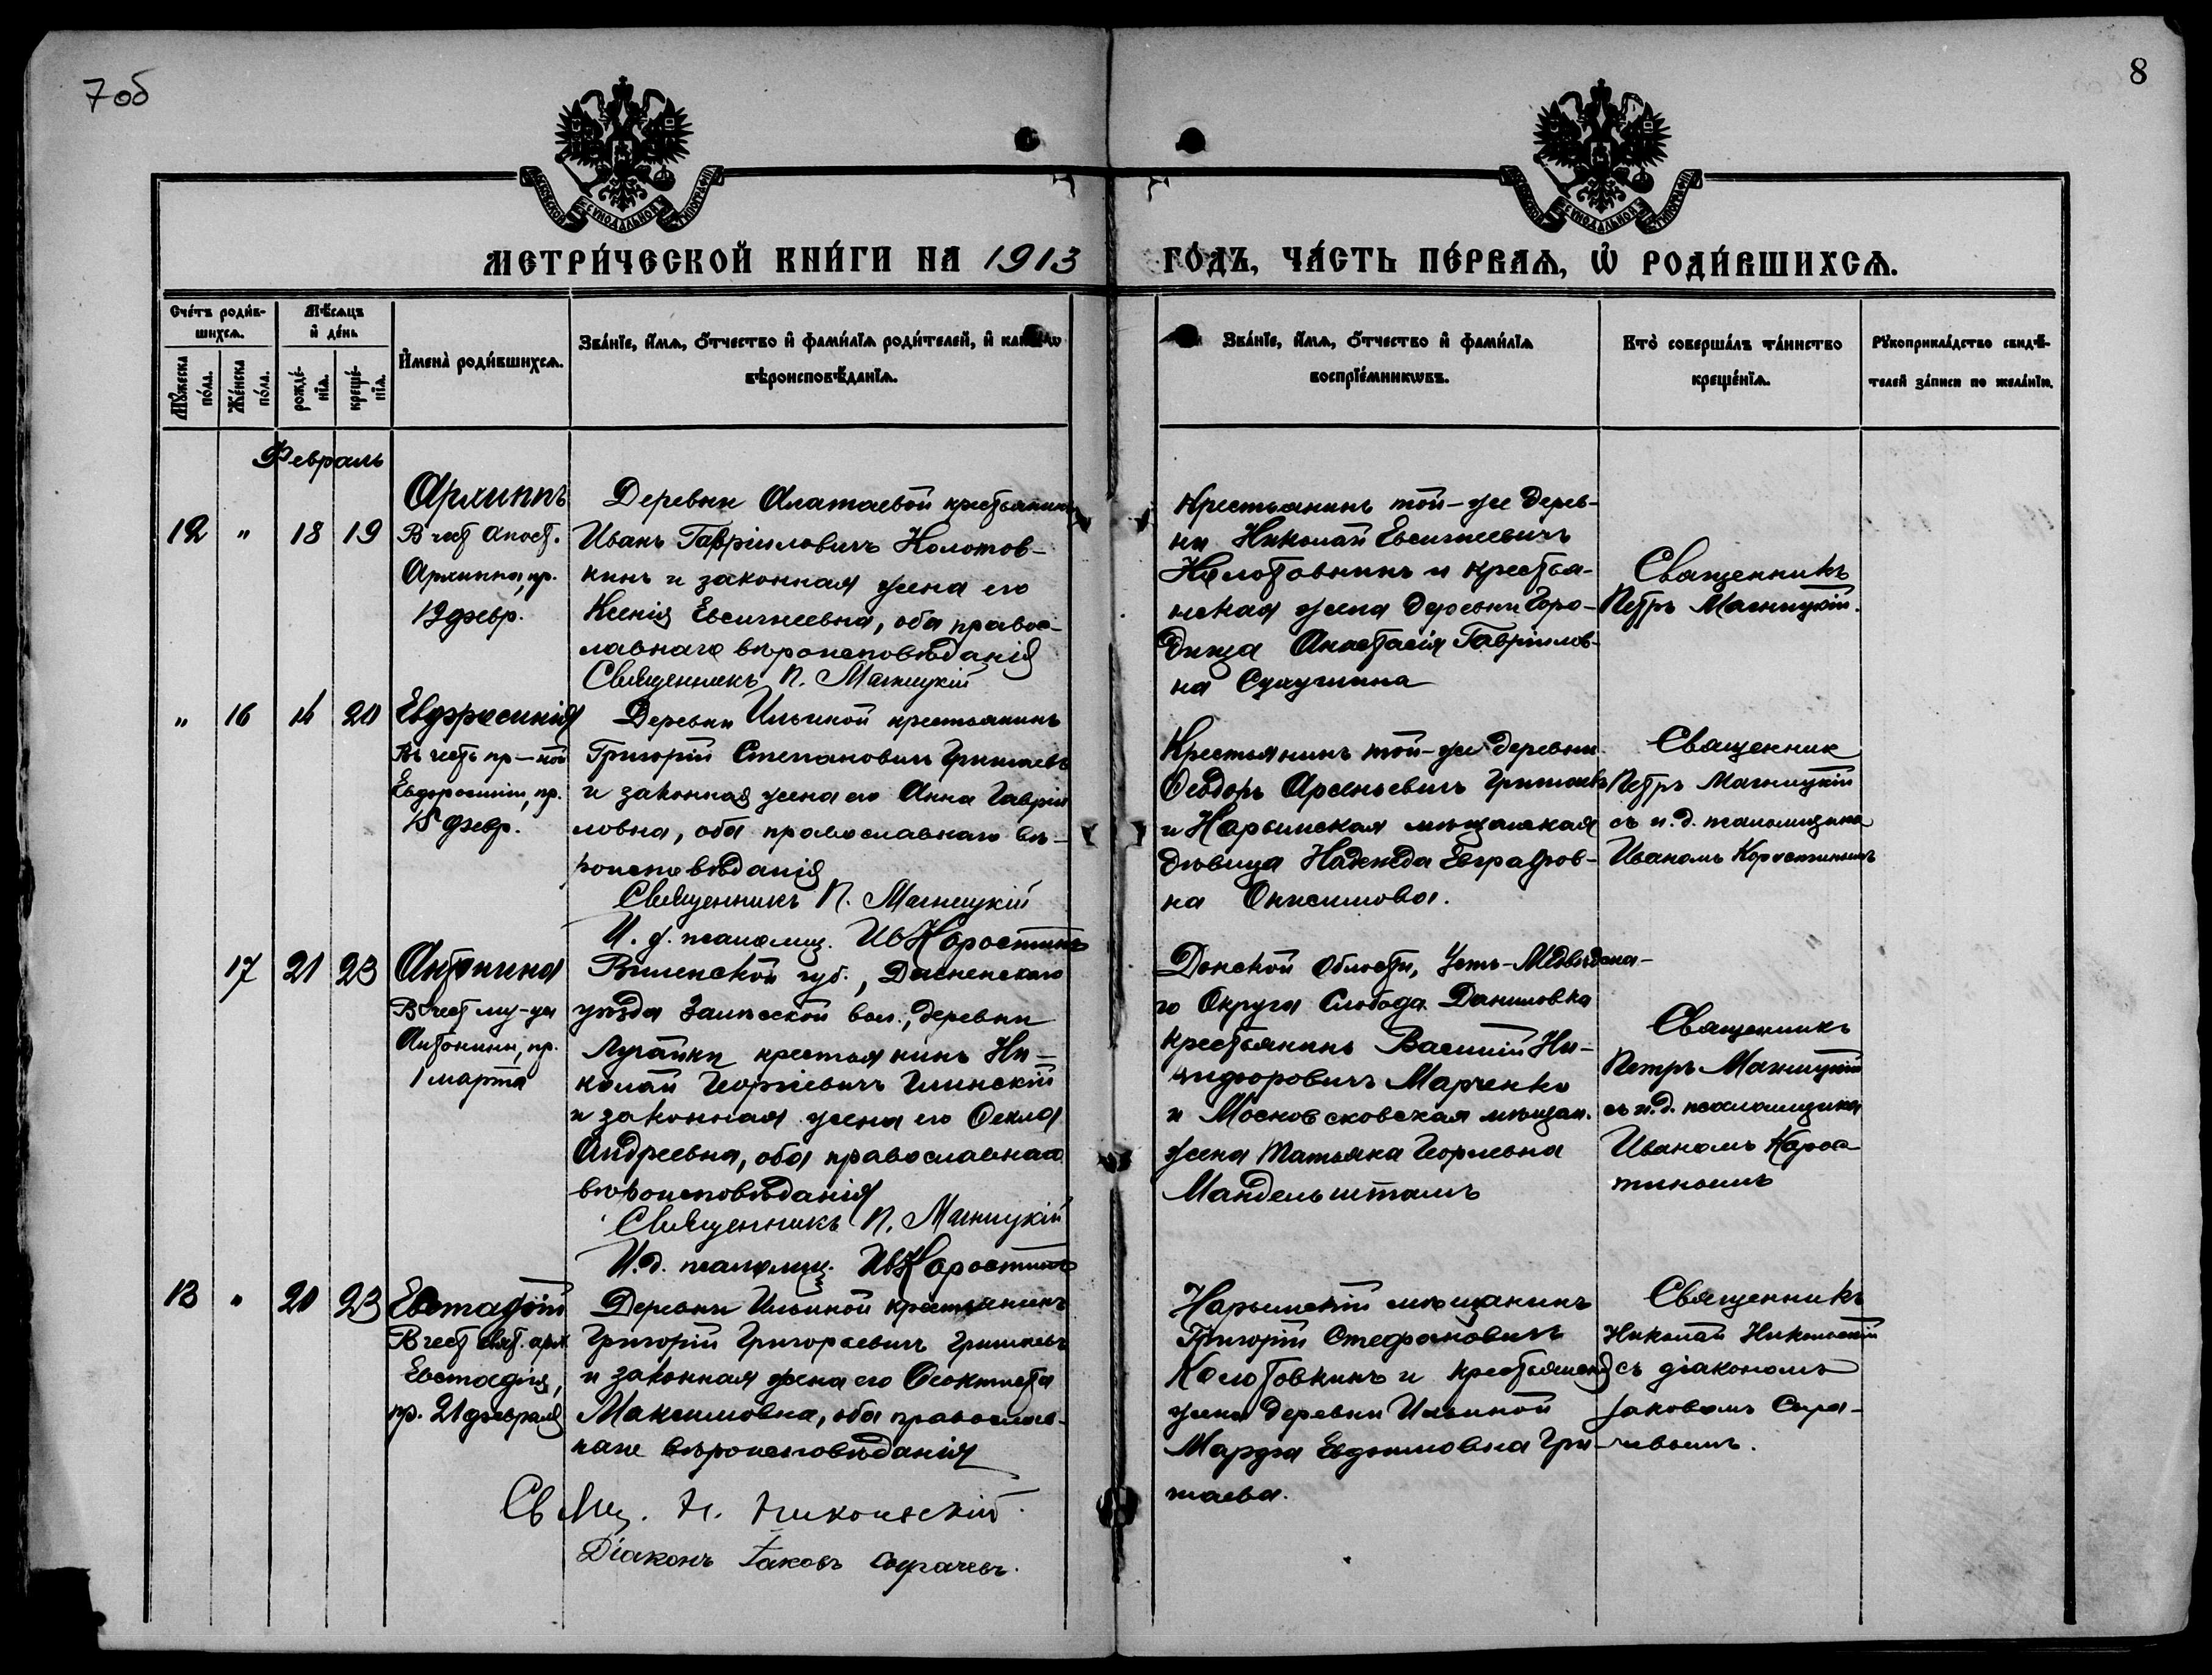 7 об
8
МЕТРИ́ЧЕСКОЙ КНИ́ГИ НА 1913
ГО́ДЪ, ЧА́СТЬ ПЕ́РВАѦ, Ѡ҆ РОДИ́ВШИХСѦ.
Сче́тъ роди́в-
шихсѧ.
Мѣ́сѧцъ
и҆ де́нь
Мꙋ́жеска по́ла.
Же́нска по́ла.
рожде́-
нїѧ.
креще́-
нїѧ.
И҆мена̀ роди́вшихсѧ.
Зва́нїе, и҆́мѧ, ѻ҆́тчество и҆ фами́лїѧ роди́телей, и҆
вѣроисповѣ́данїѧ.
Зва́нїе, и҆́мѧ, ѻ҆́тчество и҆ фами́лїѧ
воспрїе́мникѡвъ.
Кто̀ соверша́лъ та́инство
креще́нїѧ.
Рꙋкоприкла́дство свидѣ́-
телей за́писи по жела́нїю.
Февраль
12 " 18 19
Архиппъ
В чест апост.
Архиппа, пр.
19 февр.
Деревни Алатаевой крестьянинъ
Иванъ Гавріиловичъ Колотов-
кинъ и законная жена его
Ксенія Евсигнеевна, оба правос-
лавнаго вѣроисповѣданія
Священникъ П. Магницкій
Крестьянинъ той-же дерев-
ни Николай Евсигнеевичъ
Колотовкинъ и крестья-
нская жена деревни Горо-
дища Анастасія Гавріилов-
на Сухушина
Священникъ
Петръ Магницкій.
" 16 14 20
Евфросинія
Въ честь пр-ной
Евфросиніи, пр.
15 февр.
Деревни Ильиной крестьянинъ
Григорій Степановичъ Гришаевъ
и законная жена его Анна Гавріи
ловна, оба православнаго вѣ-
роисповѣданія
Священникъ П. Магницкій
И. д. псаломщ. Ив Коростинъ
Крестьянинъ той-же деревни
Ѳеодоръ Арсеньевичъ Гришаевъ
и Нарымская мѣщанская
дѣвица Надежда Евграфов-
на Онисимова.
Священник
Петръ Магницкій
съ и. д. псаломщика
Иваномъ Коростинымъ
17 21 23
Антонина
В чест му-цы
Антонины, пр.
1 марта
Виленской губ., Дисненскаго
уѣзда Залѣсской вол., деревни
Лугайки крестьянинъ Ни-
колай Георгіевичъ Глинскій
и законная жена его Ѳекла
Андреевна, оба православнаго
вѣроисповѣданія
Священникъ П. Магницкій
И.д. псаломщ. Ив Коростинъ
Донской Области, Усть-Медвѣдска-
го Округа Слобода Даниловка
крестьянинъ Василій Ни-
кифоровичъ Марченко
и Московсковская мѣщан.
жена Татьяна Георгіевна
Мандельштамъ
Священникъ
Петръ Магницкій
съ и.д. псаломщика
Иваномъ Корос
тинымъ
13 " 20 23
Евстафій
В чест свят. арх
Евстафія,
пр. 21 февраля
Деревни Ильиной крестьянинъ
Григорій Григорьевичъ Гришаевъ
и законная жена его Ѳеоктиста
Максимовна, оба православ-
наго вѣроисповѣданія
Свящ. Н. Никольскій
Діаконъ Іаковъ Сырачевъ.
Нарымскій мѣщанинъ
Григорій Стефановичъ
Колотовкинъ и крестьянская
жена деревни Ильиной
Марфа Евдокимовна Гри-
шаева.
Священникъ
Николай Никольскій
съ діакономъ
Іаковомъ Сыра-
чевымъ.